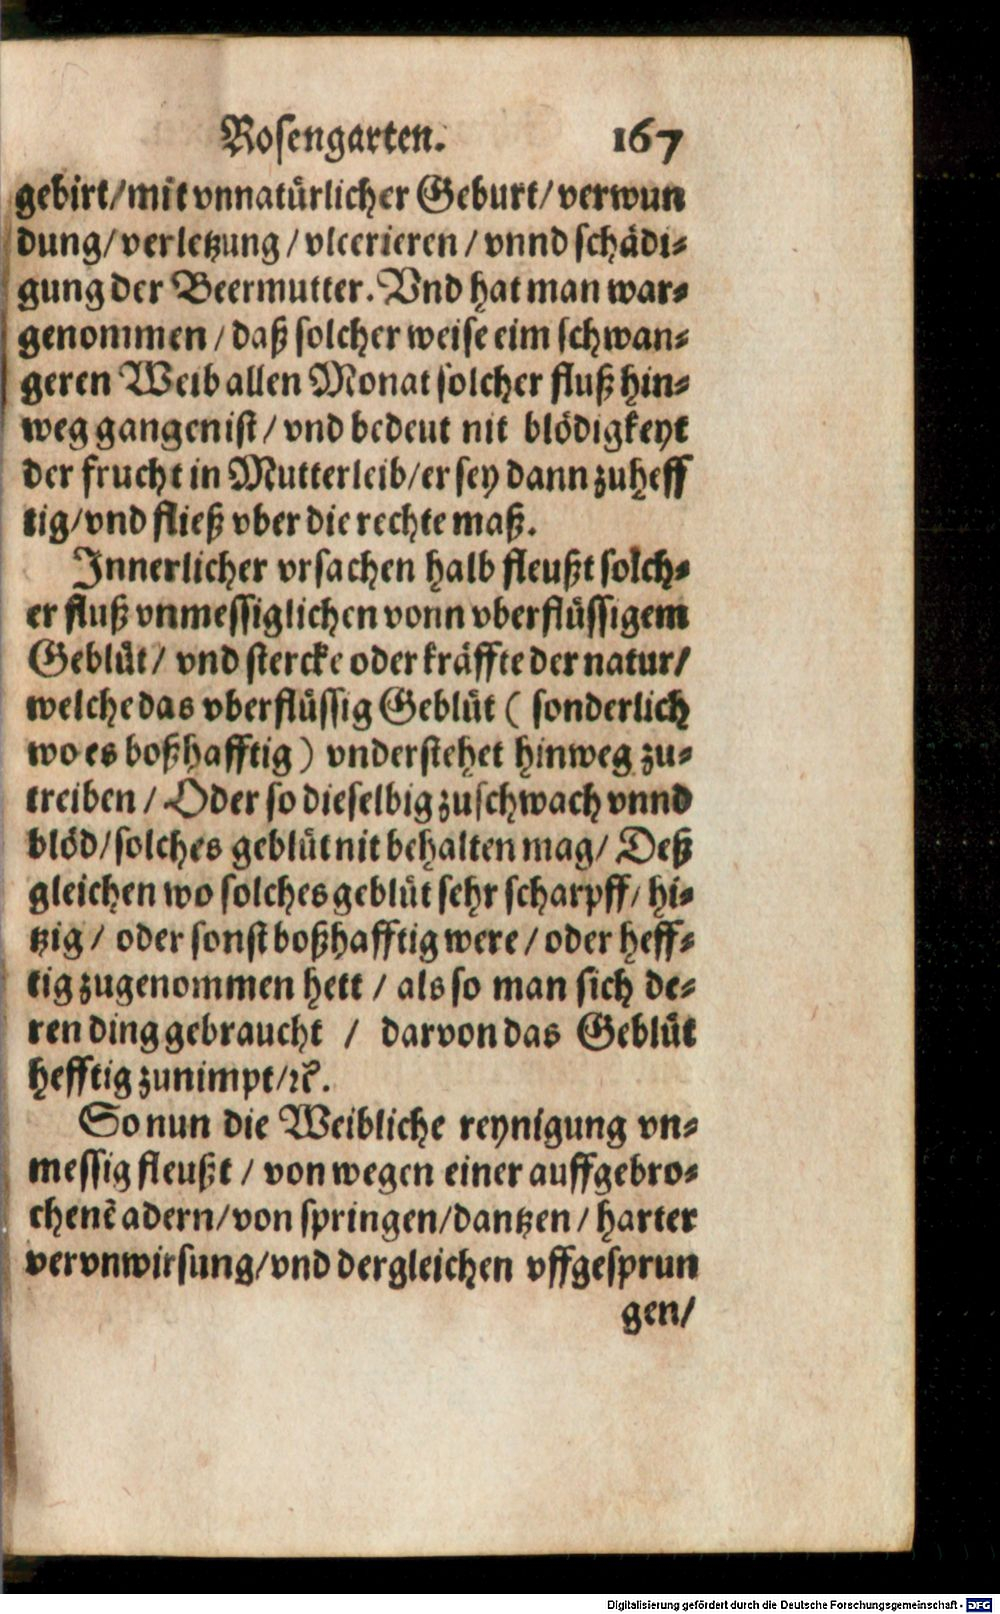 Rosengarten. 167
gebirt/mit vnnatürlicher Geburt/verwun
dung/verletzung/vlcerieren/vnnd schädi⸗
gung der Beermutter. Vnd hat man war⸗
genommen/daß solcher weise eim schwan⸗
geren Weib allen Monat solcher fluß hin⸗
weg gangen ist/vnd bedeut nit blödigkeyt
der frucht in Mutterleib/er sey dann zuheff
tig/vnd fließ vber die rechte maß.
Innerlicher vrsachen halb fleußt solch⸗
er fluß vnmessiglichen vonn vberflüssigem
Geblüt/vnd stercke oder kräffte der natur/
welche das vberflüssig Geblüt (sonderlich
wo es boßhafftig) vnderstehet hinweg zu⸗
treiben/Oder so dieselbig zuschwach vnnd
blöd/solches geblüt nit behalten mag/Deß
gleichen wo solches geblüt sehr scharpff/hi⸗
tzig/oder sonst boßhafftig were/oder heff⸗
tig zugenommen hett/als so man sich de⸗
ren ding gebraucht/darvon das Geblüt
hefftig zunimpt/ꝛc̃.
So nun die Weibliche reynigung vn⸗
messig fleußt/von wegen einer auffgebro⸗
chenẽ adern/von springen/dantzen/harter
vervnwirsung/vnd dergleichen vffgesprun
gen/
Digitalisierung gefördert durch die Deutsche Forschungsgemeinschaft - DFG